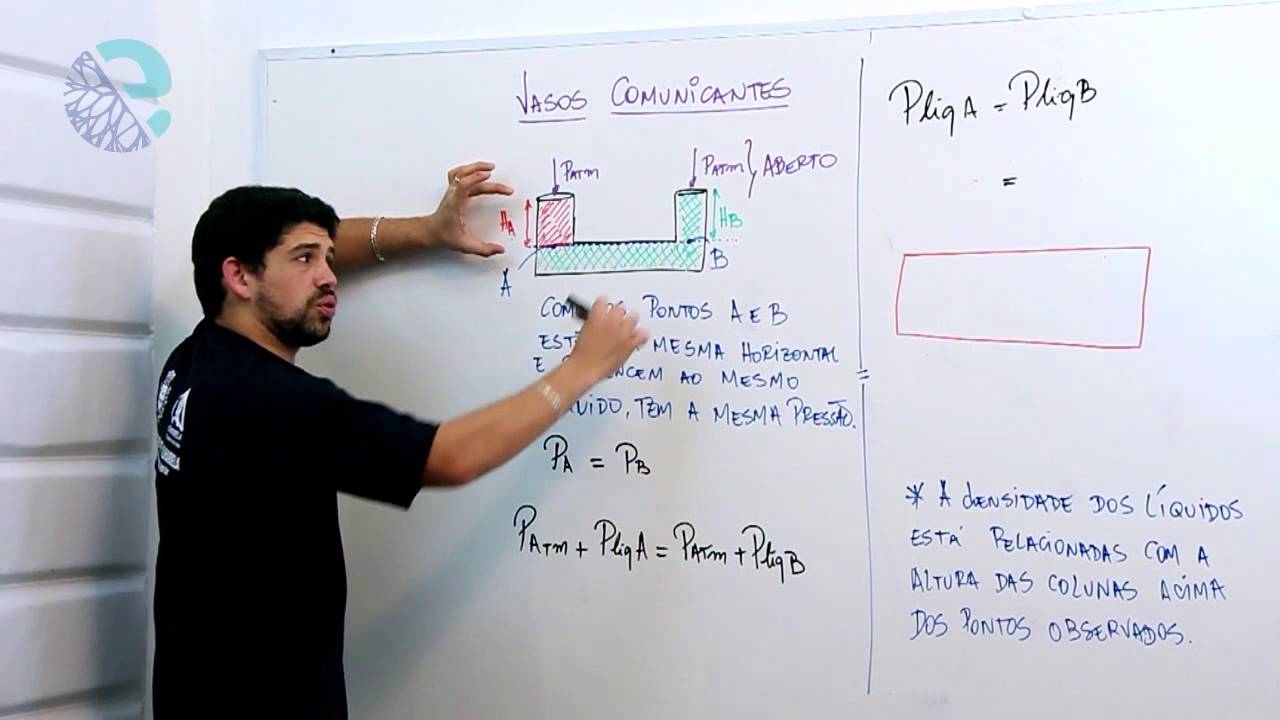 VASOS COMUNICANTES
PATM
PATM } ABERTO
HA
HB
A
B
COM PONTOS A E B
MESMA HORIZONTAL
E AO MESMO
, TÊM A MESMA PRESSÃO.
PA = PB
PATM + PliqA = PATM + PliqB
PliqA = PliqB
=
* A DENSIDADE DOS LÍQUIDOS
ESTÁ RELACIONADAS COM A
ALTURA DAS COLUNAS ACIMA
DOS PONTOS OBSERVADOS.